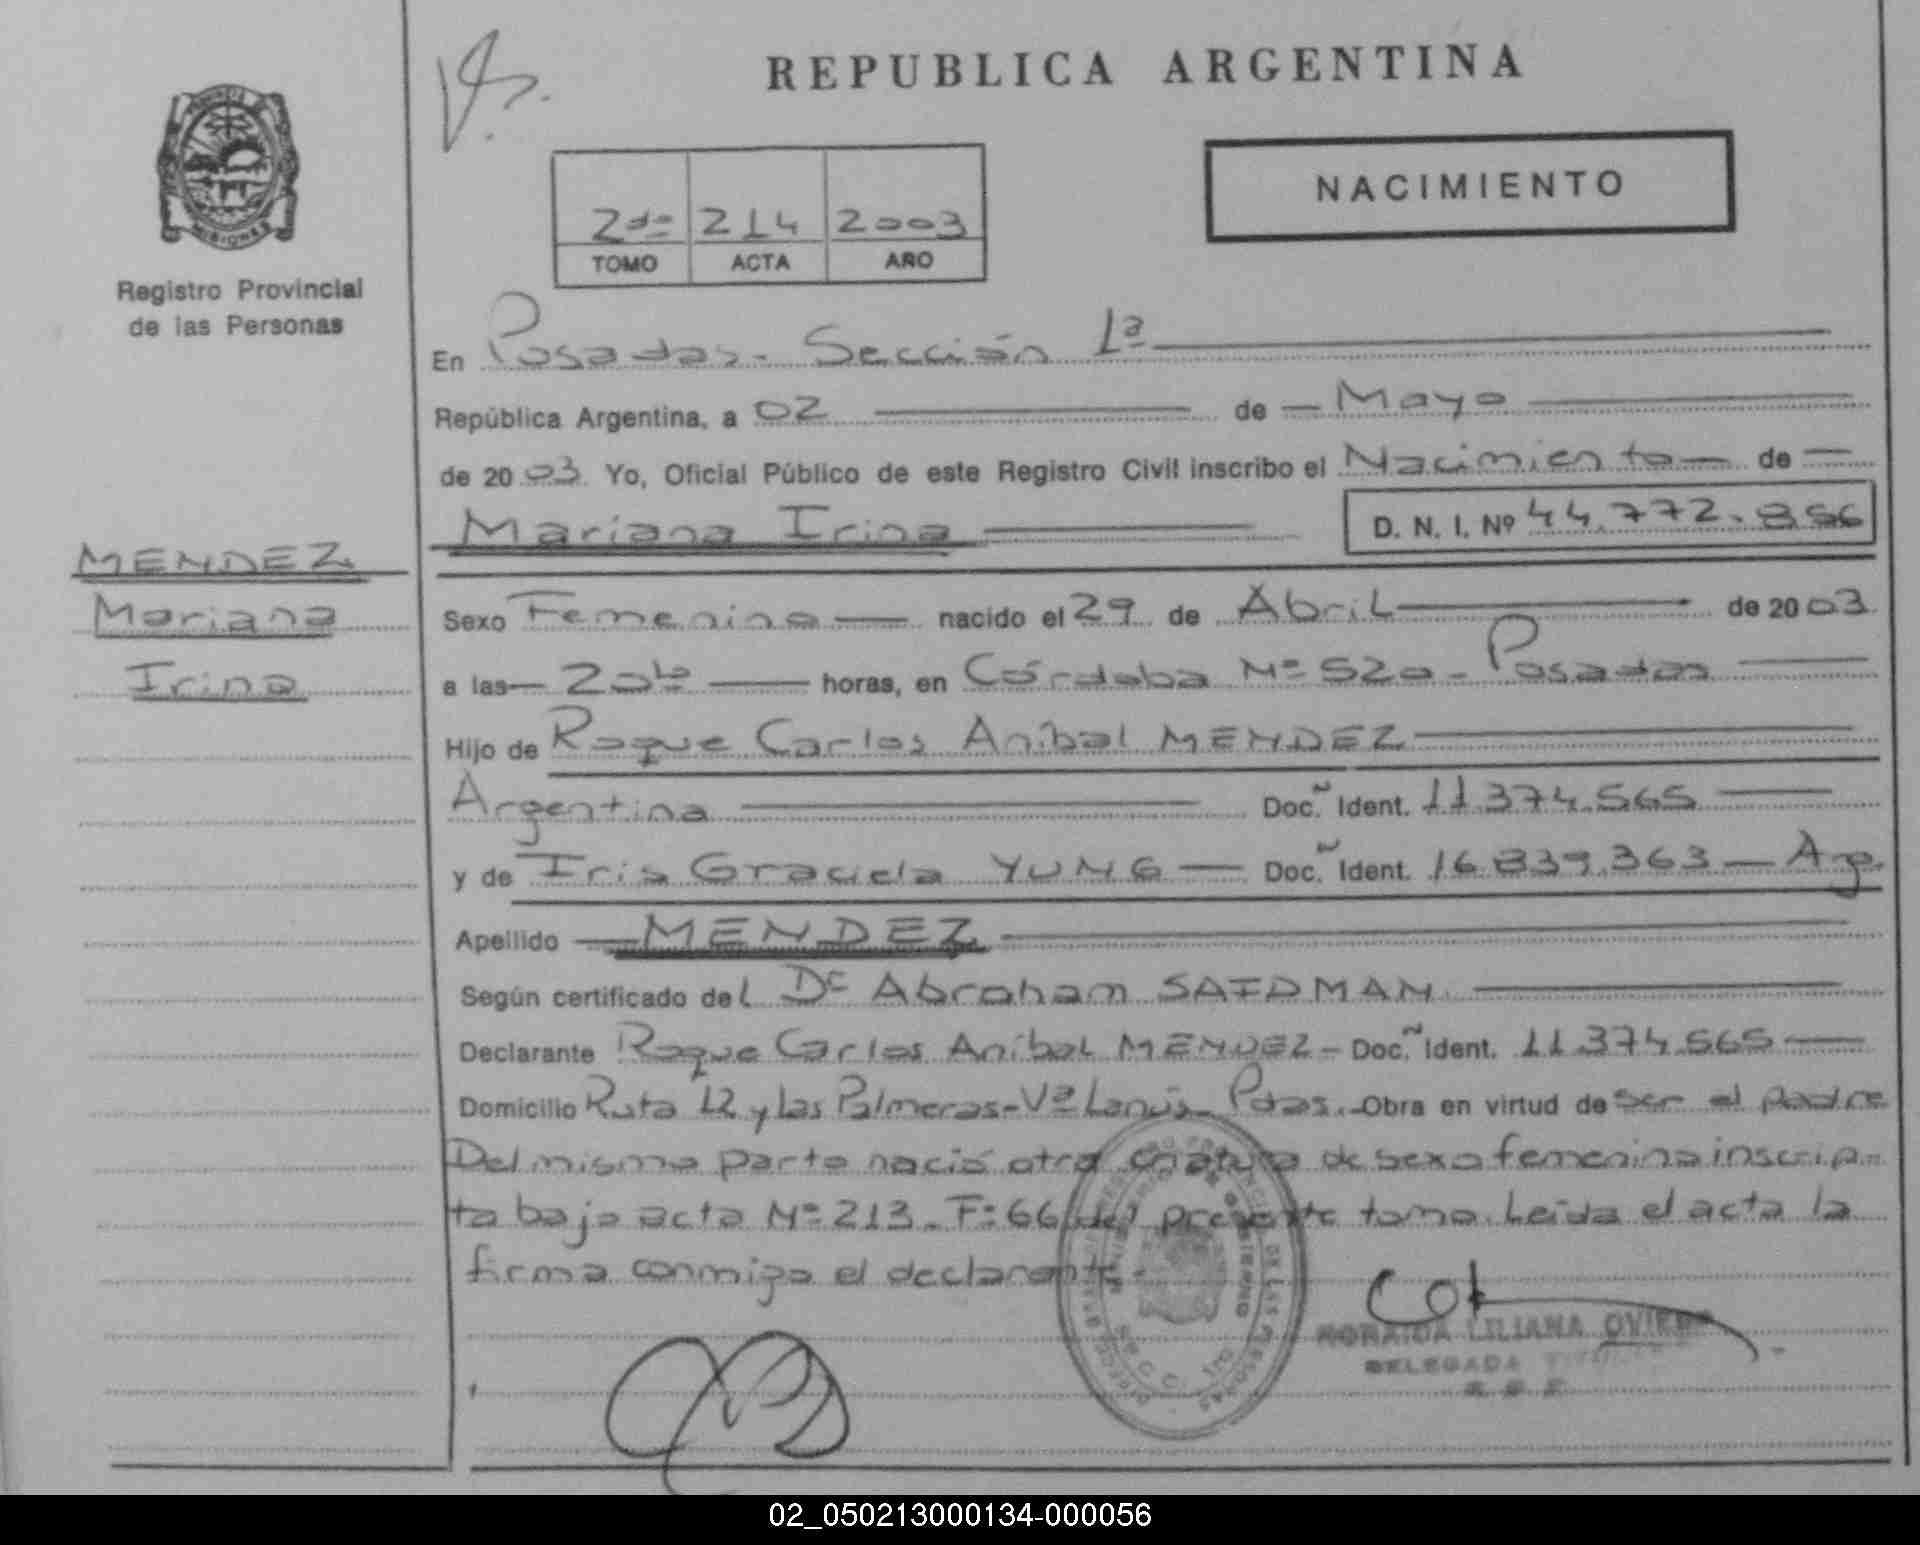 REPUBLICA ARGENTINA
NACIMIENTO
2do 214 2003
TOMO ACTA AÑO
PROVINCIA DE
MISIONES
Registro Provincial
de las Personas
En Posadas - Sección 1ª
República Argentina, a 02 de Mayo
de 2003. Yo, Oficial Público de este Registro Civil inscribo el Nacimiento de
Mariana Irina D. N. I. Nº 44.772.856
MENDEZ
Mariana
Irina
Sexo Femenino nacido el 29 de Abril de 2003
a las 20hs horas, en Córdoba Nº 520 - Posadas
Hijo de Roque Carlos Aníbal MENDEZ
Argentina Doc. Ident. 11.374.565
y de Iris Graciela YUNG Doc. Ident. 16.839.363 - Arg.
Apellido MENDEZ
Según certificado del Dr Abraham SAIDMAN
Declarante Roque Carlos Aníbal MENDEZ - Doc. Ident. 11.374.565
Domicilio Ruta 12 y las Palmeras - Vª Lanús - Pdas. Obra en virtud de ser el padre
Del mismo parto nació otra criatura de sexo femenino inscrip-
ta bajo acta Nº 213 - Fº 66 del presente tomo. Leída el acta la
firma conmigo el declarante.
LILIANA OVIEDO
DELEGADA
02_050213000134-000056